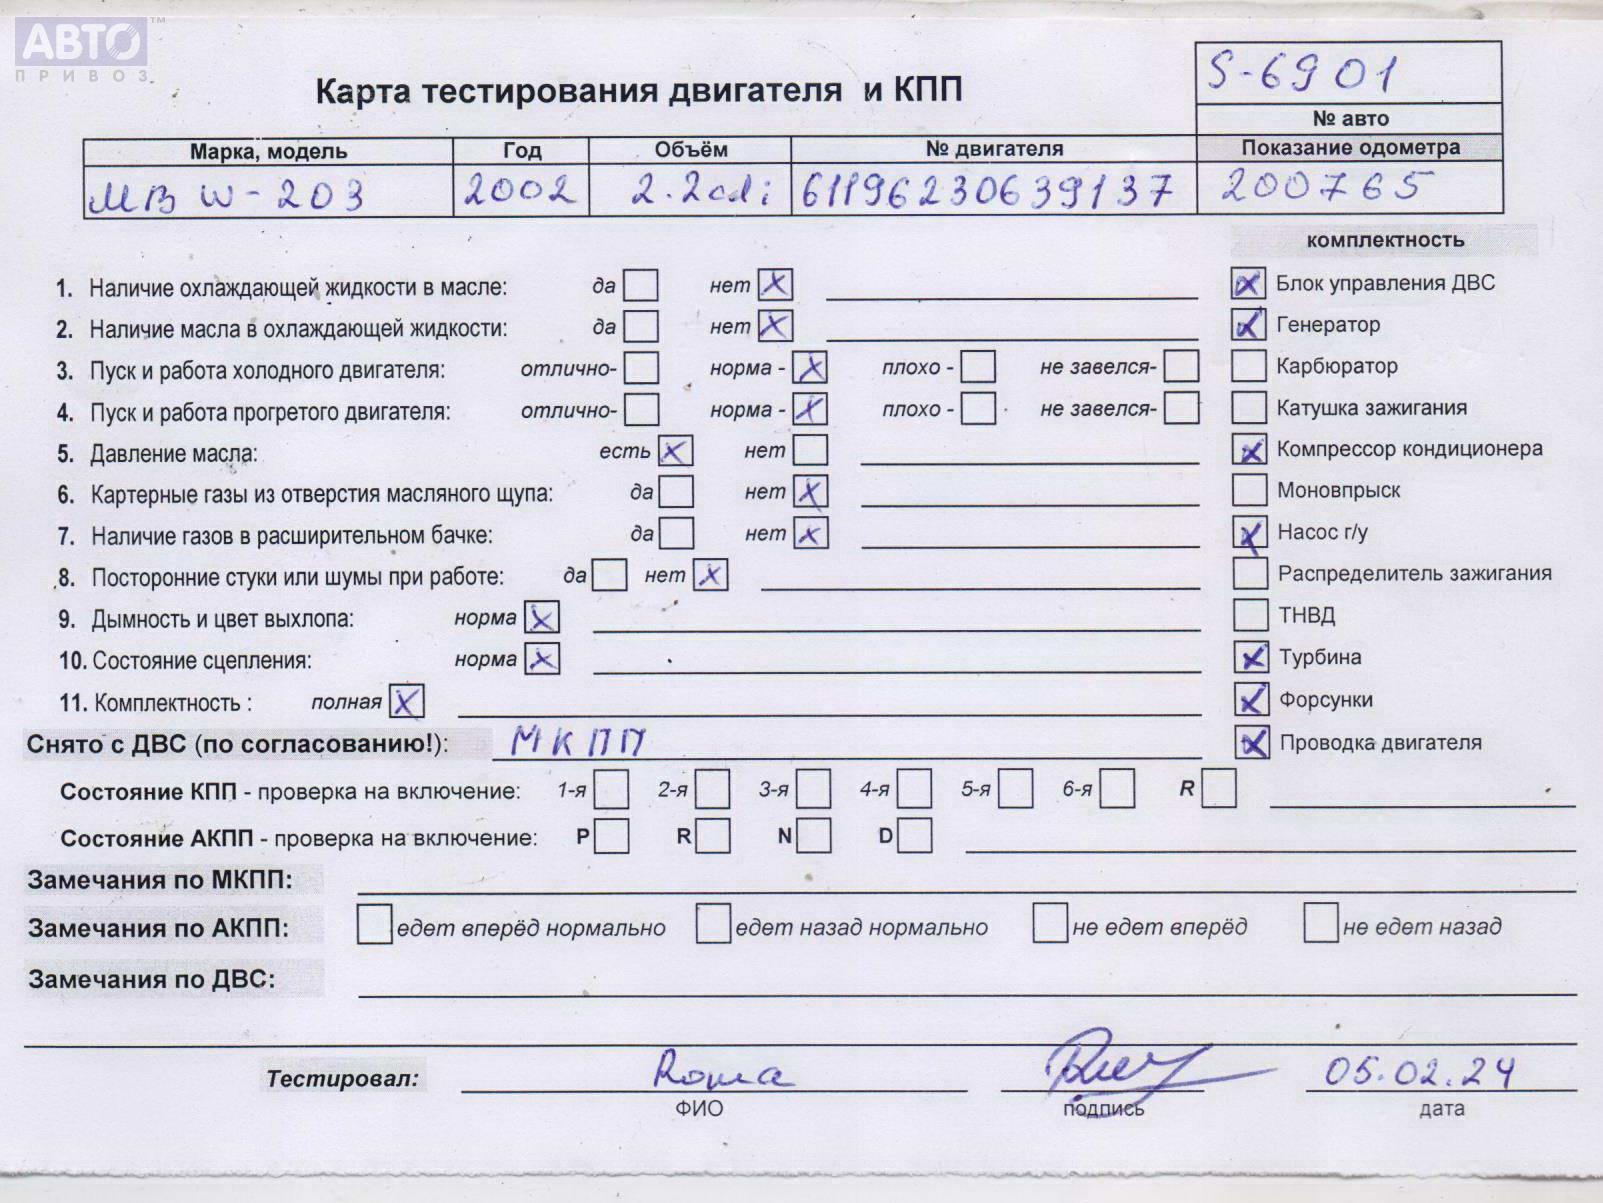 АВТО™
ПРИВОЗ
S-6901
Карта тестирования двигателя и КПП
№ авто
Марка, модель Год Объём № двигателя Показание одометра
МВ W-203 2002 2.2cdi 61196230639137 200765
комплектность
1. Наличие охлаждающей жидкости в масле: да нет х Блок управления ДВС
2. Наличие масла в охлаждающей жидкости: да нет х Генератор
3. Пуск и работа холодного двигателя: отлично- норма - х плохо - не завелся- Карбюратор
4. Пуск и работа прогретого двигателя: отлично- норма - х плохо - не завелся- Катушка зажигания
5. Давление масла: есть х нет Компрессор кондиционера
6. Картерные газы из отверстия масляного щупа: да нет х Моновпрыск
7. Наличие газов в расширительном бачке: да нет х Насос г/у
8. Посторонние стуки или шумы при работе: да нет х Распределитель зажигания
9. Дымность и цвет выхлопа: норма х ТНВД
10. Состояние сцепления: норма х Турбина
11. Комплектность : полная х Форсунки
Снято с ДВС (по согласованию!): МКПП Проводка двигателя
Состояние КПП - проверка на включение: 1-я 2-я 3-я 4-я 5-я 6-я R
Состояние АКПП - проверка на включение: P R N D
Замечания по МКПП:
Замечания по АКПП: едет вперёд нормально едет назад нормально не едет вперёд не едет назад
Замечания по ДВС:
Тестировал: Roma 05.02.24
ФИО подпись дата